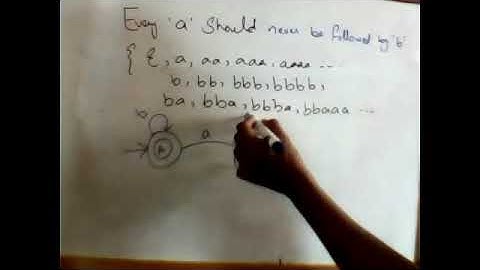 Every 'a' should never be followed by 'b'
{ ε, a, aa, aaa, aaaa ...
b, bb, bbb, bbbb,
ba, bba, bbba, bbaaa ...
b
a
A